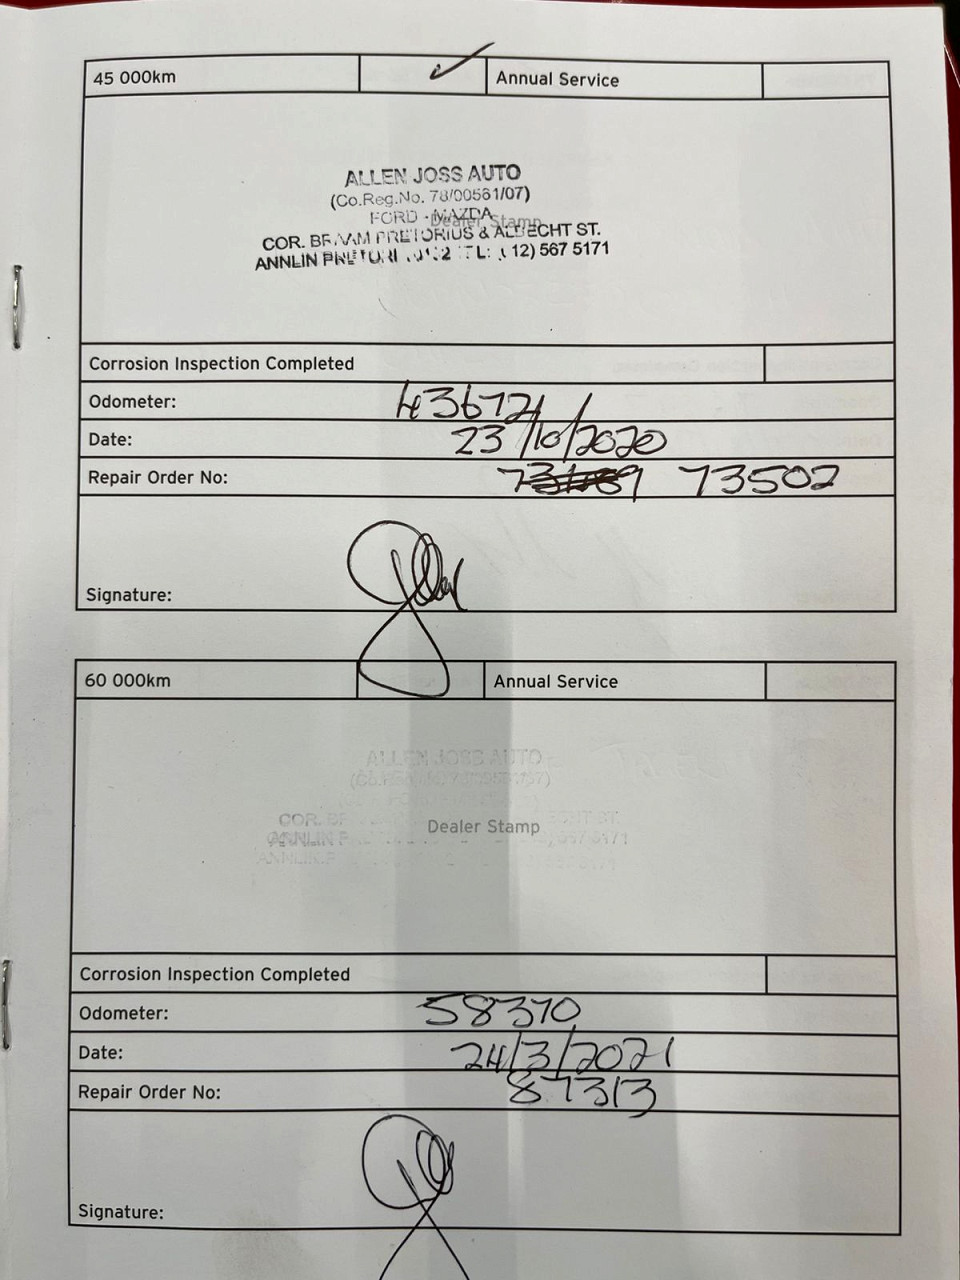 45 000km ✓ Annual Service
ALLEN JOSS AUTO
(Co.Reg.No. 78/00561/07)
FORD - MAZDA
Dealer Stamp
COR. BRAAM PRETORIUS & ALBRECHT ST.
ANNLIN 12) 567 5171
Corrosion Inspection Completed
Odometer: 43672
Date: 23/10/2020
Repair Order No: 73502
Signature:
60 000km Annual Service
ALLEN JOSS AUTO
COR.
Dealer Stamp
Corrosion Inspection Completed
Odometer: 58370
Date: 24/3/2021
Repair Order No: 87313
Signature: